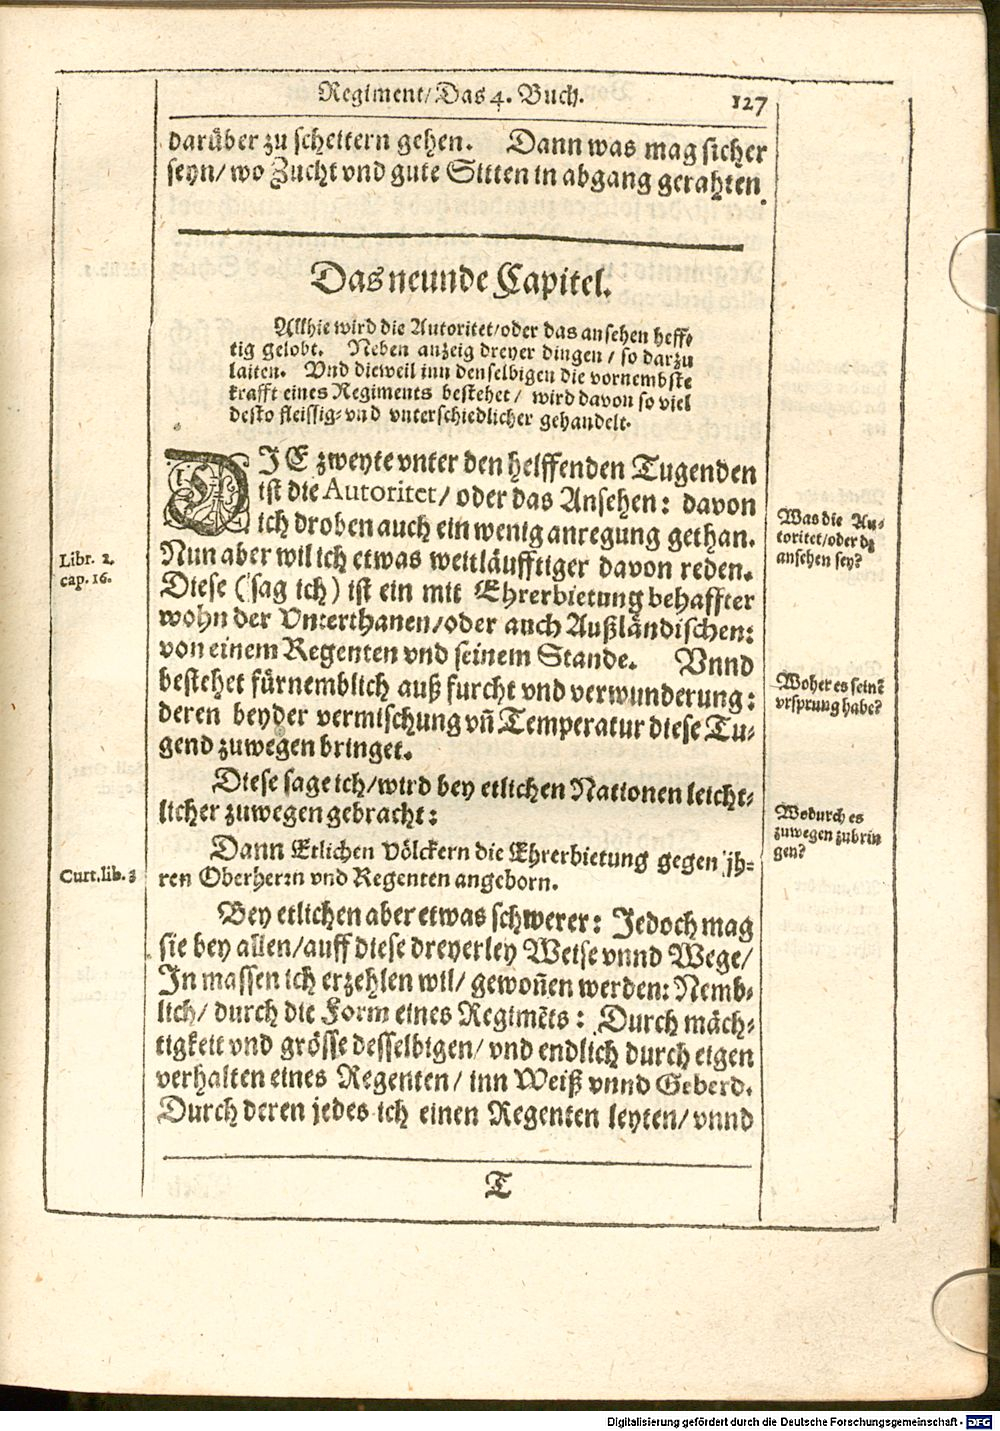 Regiment/ Das 4. Buch.
127
darüber zu scheitern gehen. Dann was mag sicher
seyn/ wo Zucht vnd gute Sitten in abgang gerahten
Das neunde Capitel.
Allhie wird die Autoritet/ oder das ansehen heff-
tig gelobt. Neben anzeig dreyer dingen/ so darzu
laiten. Vnd dieweil inn denselbigen die vornembste
krafft eines Regiments bestehet/ wird davon so viel
desto fleissig- vnd vnterschiedlicher gehandelt.
DIE zweyte vnter den helffenden Tugenden
ist die Autoritet/ oder das Ansehen: davon
ich droben auch ein wenig anregung gethan.
Nun aber wil ich etwas weitläufftiger davon reden.
Diese (sag ich) ist ein mit Ehrerbietung behaffter
wohn der Vnterthanen/ oder auch Außländischen:
von einem Regenten vnd seinem Stande. Vnnd
bestehet fürnemblich auß furcht vnd verwunderung:
deren beyder vermischung vñ Temperatur diese Tu-
gend zuwegen bringet.
Diese sage ich/ wird bey etlichen Nationen leicht-
licher zuwegen gebracht:
Dann Etlichen völckern die Ehrerbietung gegen jh-
ren Oberherrn vnd Regenten angeborn.
Bey etlichen aber etwas schwerer: Jedoch mag
sie bey allen/ auff diese dreyerley Weise vnnd Wege/
In massen ich erzehlen wil/ gewoñen werden: Nemb-
lich/ durch die Form eines Regimẽts: Durch mäch-
tigkeit vnd grösse desselbigen/ vnd endlich durch eigen
verhalten eines Regenten/ inn Weiß vnnd Geberd.
Durch deren jedes ich einen Regenten leyten/ vnnd
T
Libr. 2.
cap. 16.
Curt. lib. 3
Was die Au-
toritet/ oder dz
ansehen sey?
Woher es seinẽ
vrsprung habe?
Wodurch es
zuwegen zubrin
gen?
Digitalisierung gefördert durch die Deutsche Forschungsgemeinschaft - DFG